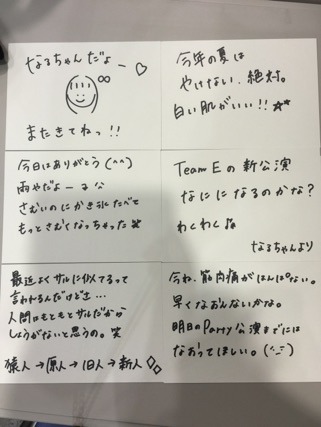 なるちゃんだよー♡
またきてねっ!!
今年の夏は
やけない、絶対。
白い肌がいい!!★★
今日はありがとう(^^)
雨やだよーる
さむいのにかき氷たべて
もっとさむくなっちゃった
Team Eの新公演
なにになるのかな?
わくわく♫
なるちゃんより
最近よくサルに似てるって
言われるんだけどさ…
人間はもともとサルだから
しょうがないと思うの。笑
猿人→原人→旧人→新人◇◇
今ね、筋肉痛がはんぱない。
早くなおんないかな。
明日のParty公演までには
なおってほしい。(^_^)